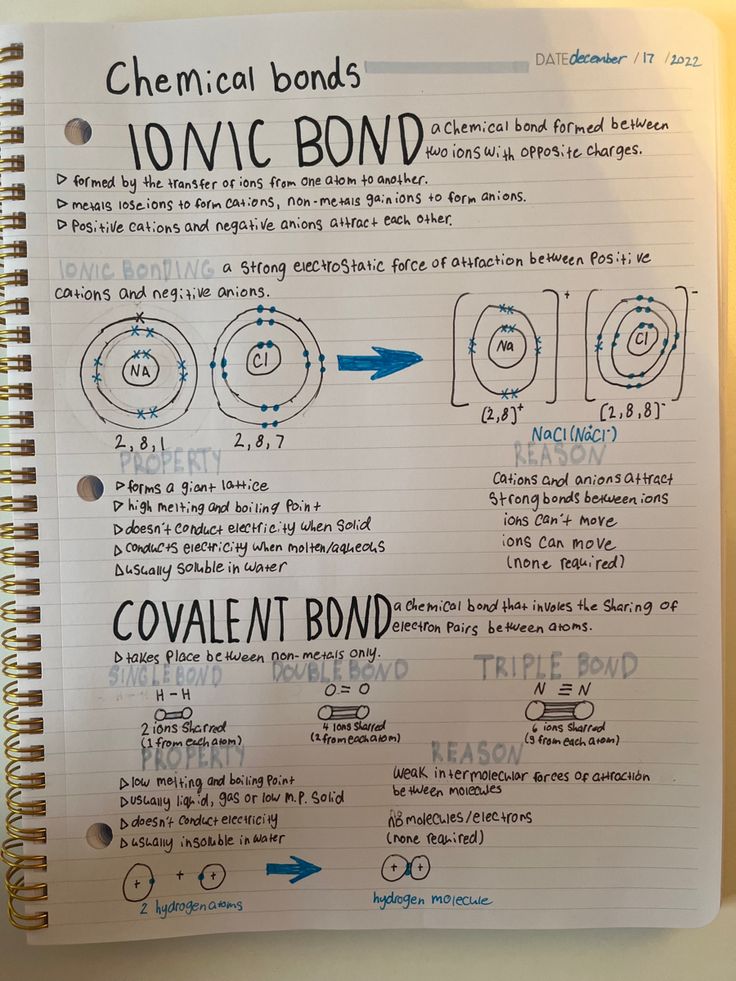 DATE december / 17 / 2022
Chemical bonds
IONIC BOND a chemical bond formed between
two ions with opposite charges.
▷ formed by the transfer of ions from one atom to another.
▷ metals lose ions to form cations, non-metals gain ions to form anions.
▷ Positive cations and negative anions attract each other.
IONIC BONDING a strong electrostatic force of attraction between Positive
cations and negitive anions.
NA Cl Na + Cl -
2, 8, 1 2, 8, 7 (2,8)+ (2,8,8)-
NaCl (Na+Cl-)
PROPERTY REASON
▷ forms a giant lattice Cations and anions attract
▷ high melting and boiling Point Strong bonds between ions
▷ doesn't conduct electricity when Solid ions can't move
▷ conducts electricity when molten/aqueous ions can move
▷ usually soluble in water (none required)
COVALENT BOND a chemical bond that involes the sharing of
electron pairs between atoms.
▷ takes place between non-metals only.
SINGLE BOND DOUBLE BOND TRIPLE BOND
H-H O=O N≡N
2 ions sharred 4 ions sharred 6 ions sharred
(1 from each atom) (2 from each atom) (3 from each atom)
PROPERTY REASON
▷ low melting and boiling Point weak intermolecular forces of attraction
▷ usually liquid, gas or low M.P. Solid between molecules
▷ doesn't conduct electricity no molecules/electrons
▷ usually insoluble in water (none required)
+ + + + +
2 hydrogen atoms hydrogen molecule